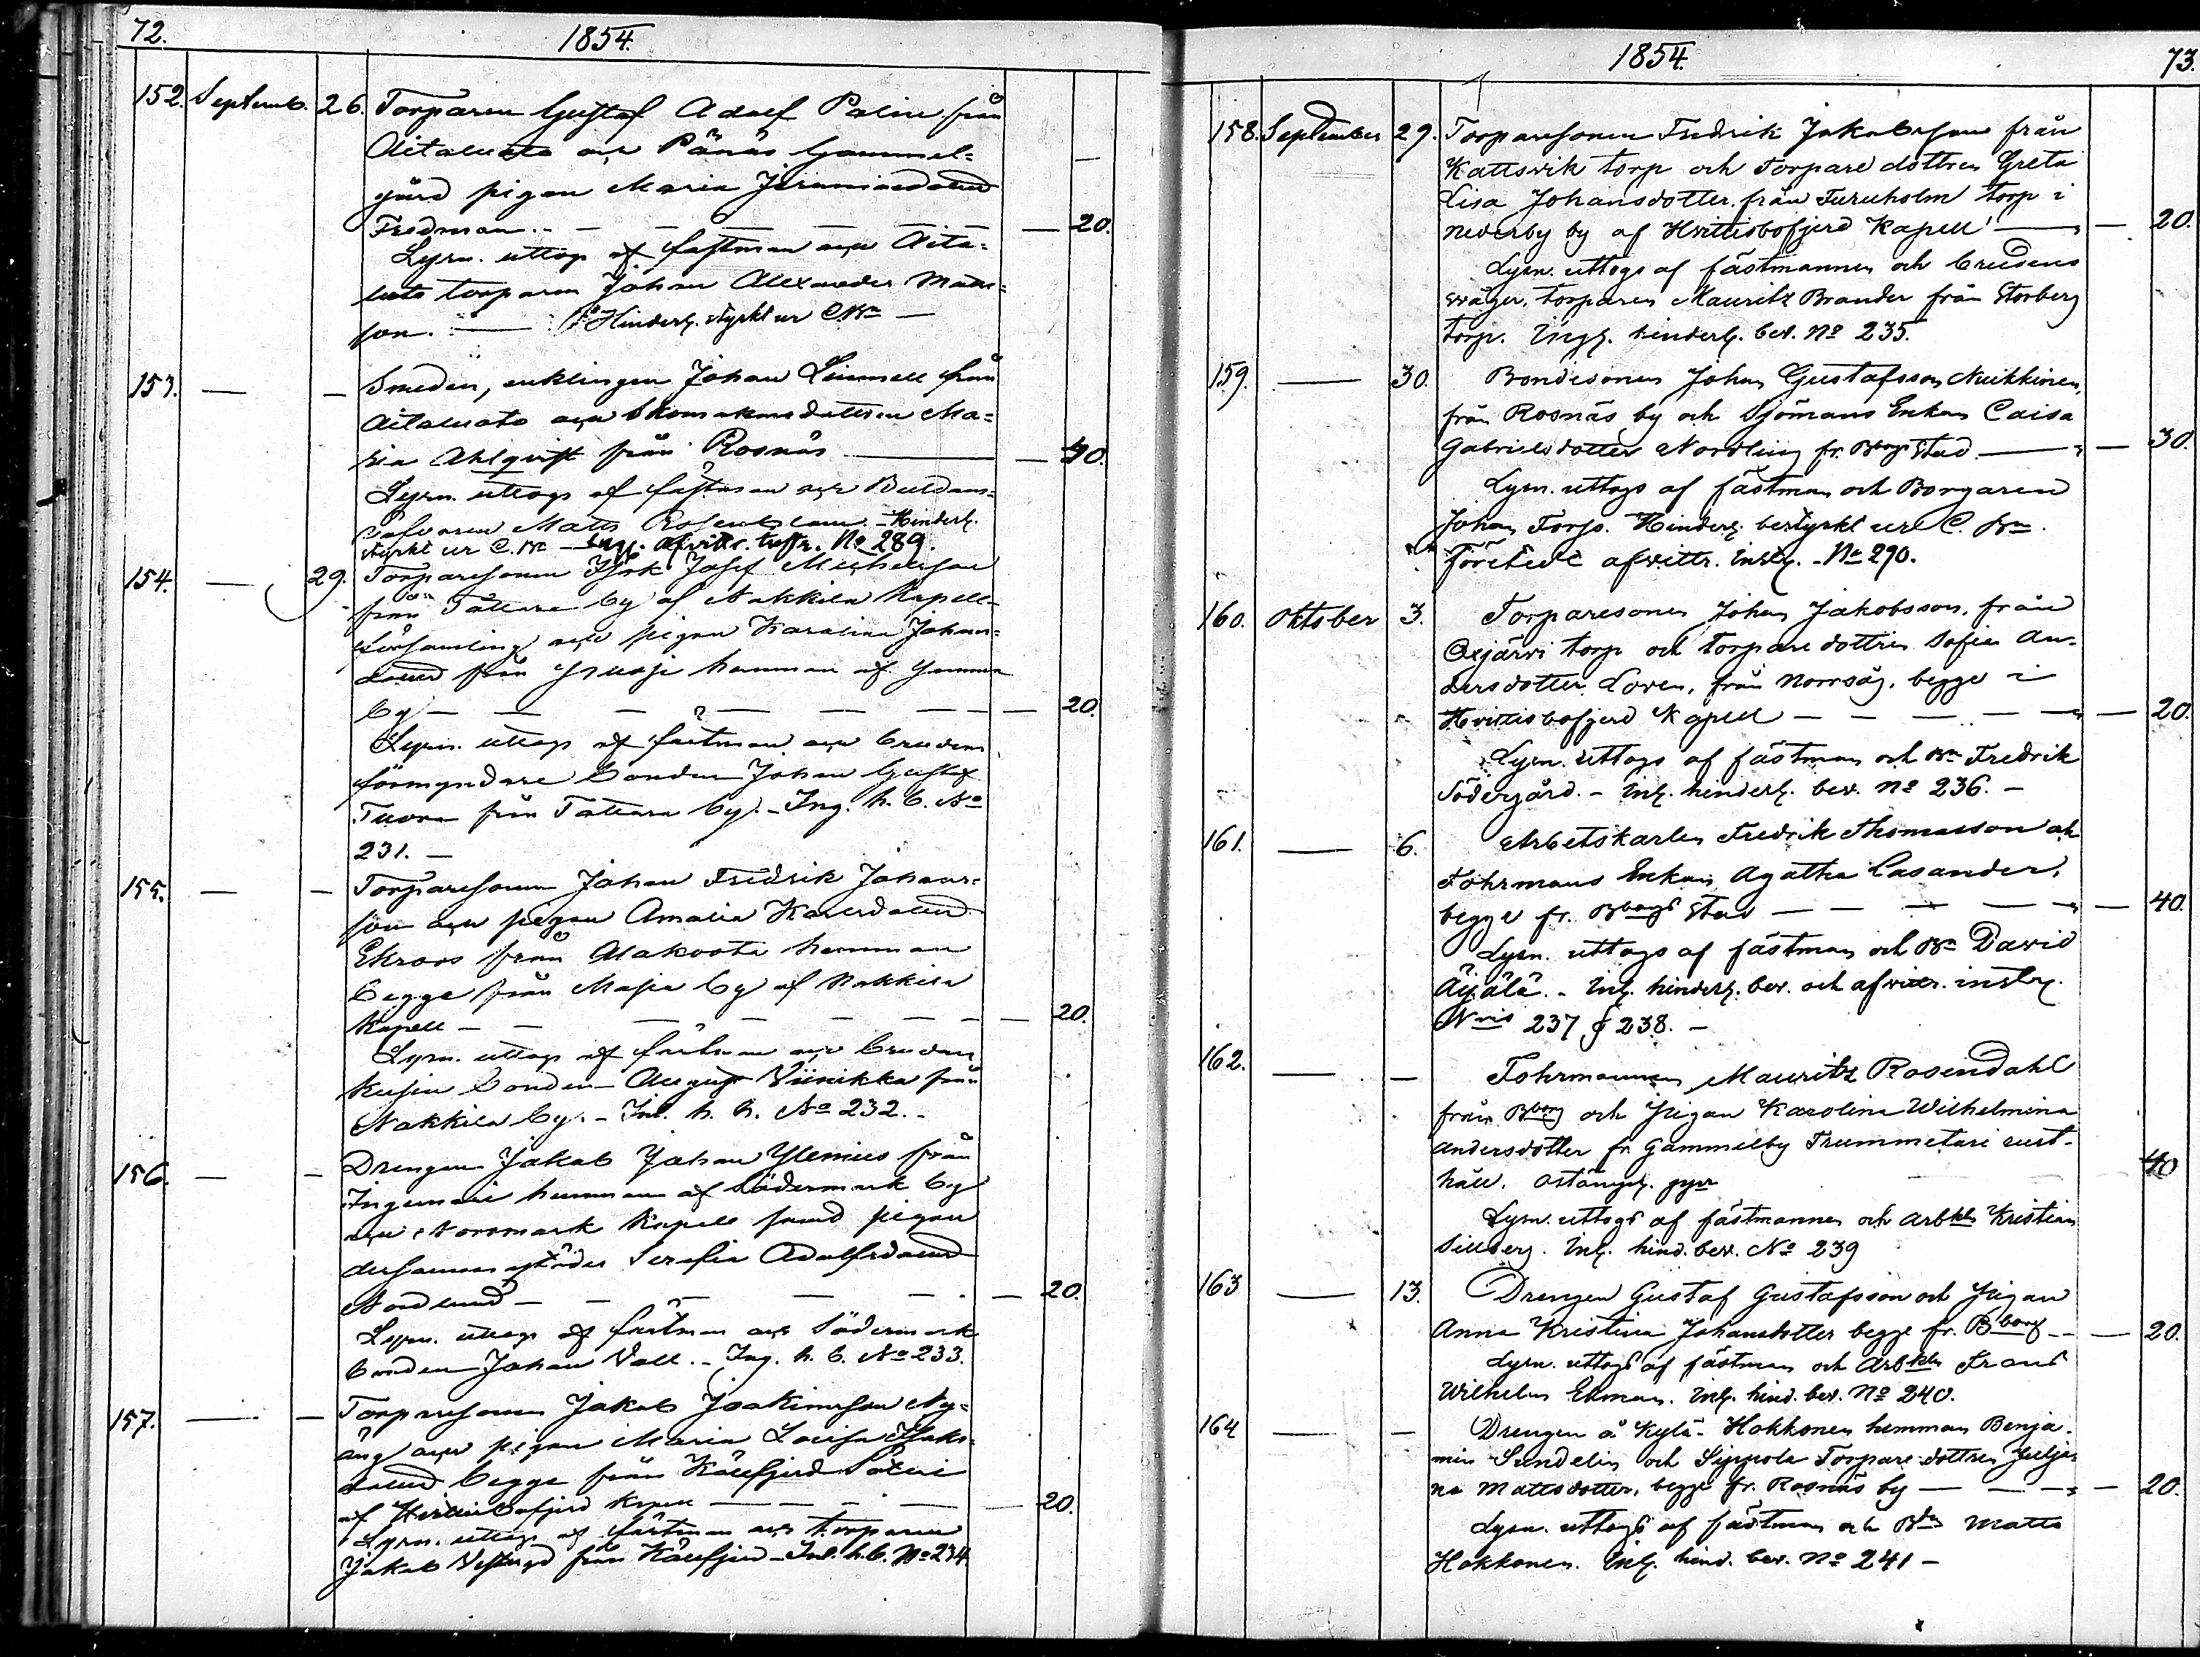 72.
1854.
152. Septemb. 26. Torparen Gustaf Adolf Palin från
Aitaluoto och Pänäs Gammel=
gård pigan Maria Jeremiedotter
Fredman. — — — — — 20.
Lysn. uttogs af fästman och Aita=
luoto torparen Johan Alexander Matts=
son. — Hinderl. styrkt ur C.Bn —
153. — — Smeden, enklingen Johan Linnell från
Aitaluoto och Skomakaredottren Ma=
ria Ahlqvist från Rosnäs — 40.
Lysn. uttogs af fästman och Buldans=
väfvaren Matts Rosenblom. — Hinderl.
styrkt ur C. Bn — Ingg. afvittr. instr. No 289.
154. — 29. Torparesonen Isak Josef Michelsson
från Tattara by af Nakkila Kapell=
församling och pigan Karolina Johans=
dotter från hemman af Gammel
by — — — — — 20.
Lysn. uttogs af fästman och brudens
förmyndare bonden Johan Gustaf
Tuora från Tattara by. — Ing. h. b. No
231. —
155. — — Torparesonen Johan Fredrik Johans=
son och pigan Amalia Karlsdotter
Ekroos från Alakoota hemman
begge från by af Nakkila
Kapell — — — — — 20.
Lysn. uttogs af fästman och brudens
kusin bonden August Viinikka från
Nakkila by. — Inl. h. b. No 232. —
156. — — Drengen Jakob Johan Ylenius från
hemman af Södermark by
och Norrmark Kapell samt pigan
dersammastädes Serafia Adolfsdotter
Nordlund — — — — — 20.
Lysn. uttogs af fästman och Södermark
bonden Johan Vall. — Ing. h. b. No 233.
157. — — Torparesonen Jakob Joakimsson Ny=
äng och pigan Maria Lovisa Isaks=
dotter begge från Kåufjerd
af Hvittisbofjerd Kapell — — — 20.
Lysn. uttogs af fästman och torparen
Jakob från Kåufjerd — Inl. h. b. No 234
1854.
73.
158. September 29. Torparesonen Fredrik Jakobsson från
Kattsvik torp och Torpare dottren Greta
Lisa Johansdotter från Furuholm torp i
Nederby by af Hvittisbofjerd Kapell — — 20.
Lysn. uttogs af fästmannen och brudens
svåger, torparen Mauritz Brander från Storberg
torp. Ingg. hinderl. bev. No 235.
159. — 30. Bondesonen Johan Gustafsson Nuikkinen,
från Rosnäs by och Sjömans Enkan Caisa
Gabrielsdotter Nordling fr. Bborgs Stad. — — 30.
Lysn. uttogs af fästman och Borgaren
Johan Torps. Hinderl. bestyrkt ur C. Bn.
Företedt afvittr. instr. — No 290.
160. Oktober 3. Torparesonen Johan Jakobsson, från
Oxjärvi torp och torpare dottren Sofia An=
dersdotter Loren, från Norrsåg, begge i
Hvittisbofjerd Kapell — — — — 20.
Lysn. uttogs af fästman och Bn Fredrik
Södergård. — Inl. hinderl. bev. No 236. —
161. — 6. Arbetskarlen Fredrik Thomasson och
Fohrmans Enkan Agatha Casander,
begge fr. Bborgs Stad — — — — 40.
Lysn. uttogs af fästman och Bn David
Äijälä. — Inl. hinderl. bev. och afvittr. instr.
Nris 237 & 238. —
162. — — Fohrmannen Mauritz Rosendahl
från Bborg och Pigan Karolina Wilhelmina
Andersdotter fr. Gammelby Trummetari rust=
håll. 40
Lysn. uttogs af fästmannen och Arbkln Kristian
Sillberg. Inl. hind. bev. No 239
163 — 13. Drengen Gustaf Gustafsson och Pigan
Anna Kristina Johansdotter begge fr. Bborg — — 20.
Lysn. uttogs af fästman och Arbkln Frans
Wilhelm Ekman. Inl. hind. bev. No 240.
164 — — Drengen å Kylä-Hokkonen hemman Benja=
min Sundelin och Sippola Torpare dottren Julja=
na Mattsdotter, begge fr. Rosnäs by — — — 20.
Lysn. uttogs af fästman och Bdn Matts
Hokkonen. Inl. hind. bev. No 241 —